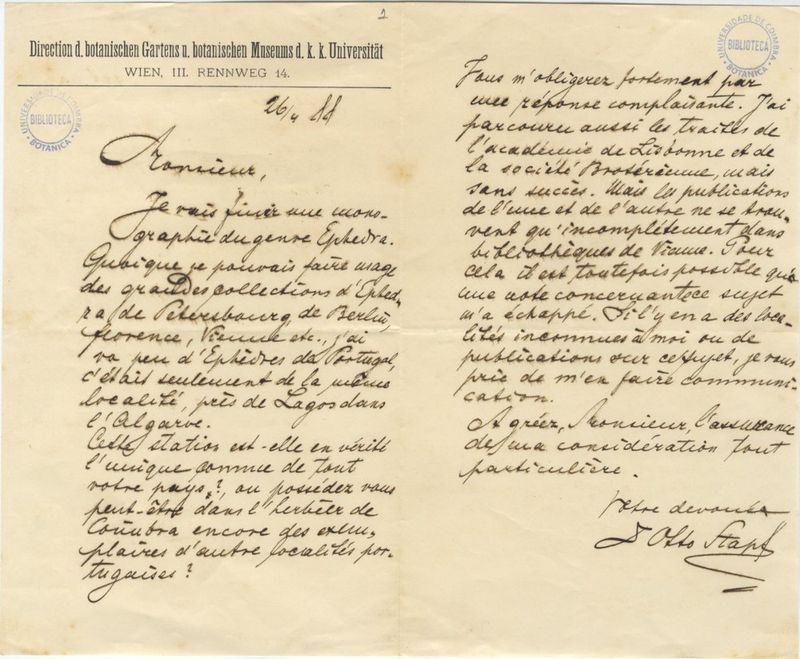 1
Direction d. botanischen Gartens u. botanischen Museums d. k. k. Universität
WIEN, III. RENNWEG 14.
UNIVERSIDADE DE COIMBRA
BIBLIOTECA
BOTANICA
26/4 88
Monsieur,
Je vais finir une mono-
graphie du genre Ephedra.
Quoique je pouvais faire usage
des grandes collections d'Ephed-
ra, de Petersbourg, de Berlin,
florence, Vienne etc., j'ai
vu peu d'Ephèdres de Portugal,
c'était seulement de la même
localité, près de Lagos dans
l'Algarve.
Cette station est-elle en vérité
l'unique connue de tout
votre pays?, ou possédez vous
peut-être dans l'herbier de
Coimbra encore des exem-
plaires d'autre localités por-
tugaises?
UNIVERSIDADE DE COIMBRA
BIBLIOTECA
BOTANICA
Vous m'obligerez fortement par
une réponse complaisante. J'ai
parcouru aussi les traités de
l'académie de Lisbonne et de
la société Brotérienne, mais
sans succès. Mais les publications
de l'une et de l'autre ne se trou-
vent qu'incomplétement dans
bibliothèques de Vienne. Pour
cela il est toutefois possible qu'
une note concernant ce sujet
m'a échappé. S'il y en a des loca-
lités inconnues à moi ou de
publications sur ce sujet, je vous
prie de m'en faire communi-
cation.
Agréez, Monsieur, l'assurance
de ma considération tout
particulière.
Votre devoué
D Otto Stapf